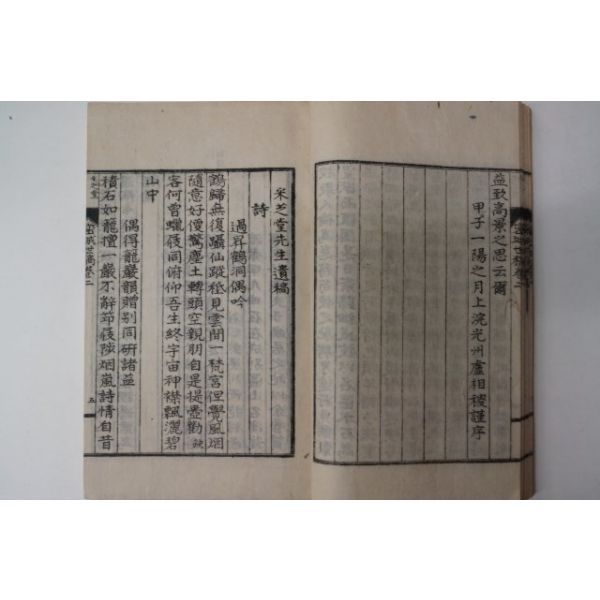 益致高景之思云爾
甲子一陽之月上浣光州盧相稷謹序
采芝堂先生遺稿
詩
過昇鶴洞偶吟
鶴歸無復躡仙蹤秪見雲間一梵宮但覺風烟
隨意好便驚塵土轉頭空親朋自是提壺勸缺
客何曾蠟屐同俯仰吾生終宇宙神襟飄灑碧
山中
偶得龍巖韻贈別同研諸益
積石如龍檀一巖不辭節屐陟烟嵐詩情自昔
世稿卷二
五